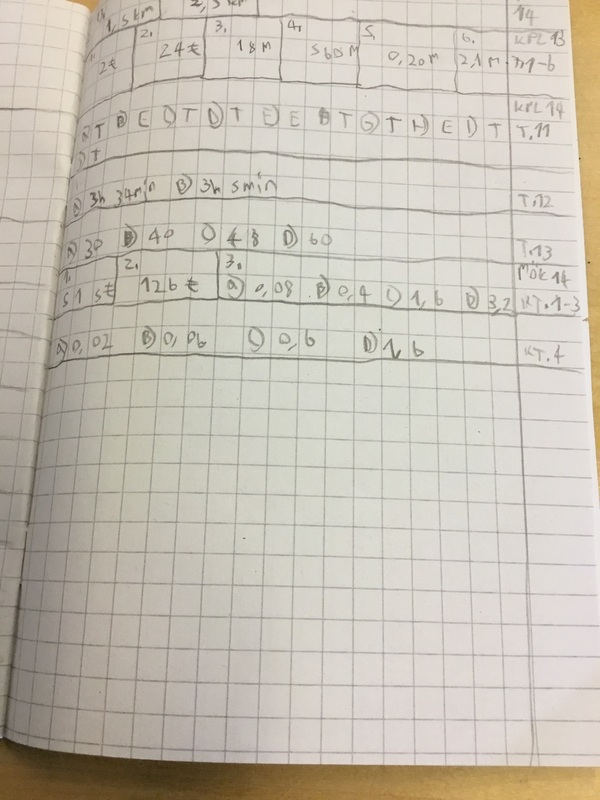 1,5 km 2,5 km 14
KPL 13
1. 2€ 2. 24€ 3. 18m 4. 560m 5. 0,20m 6. 2,1m m1-6
KPL 14
a) T B) E C) T D) T E) E F) T G) T H) E I) T T.11
J) T
a) 3h 34min B) 3h 5min T.12
a) 30 B) 40 C) 48 D) 60 T.13
MÖK 14
1. 51st 2. 126€ 3. a) 0,08 B) 0,4 C) 1,6 D) 3,2 KT.1-3
a) 0,02 B) 0,06 C) 0,6 D) 1,6 KT.4